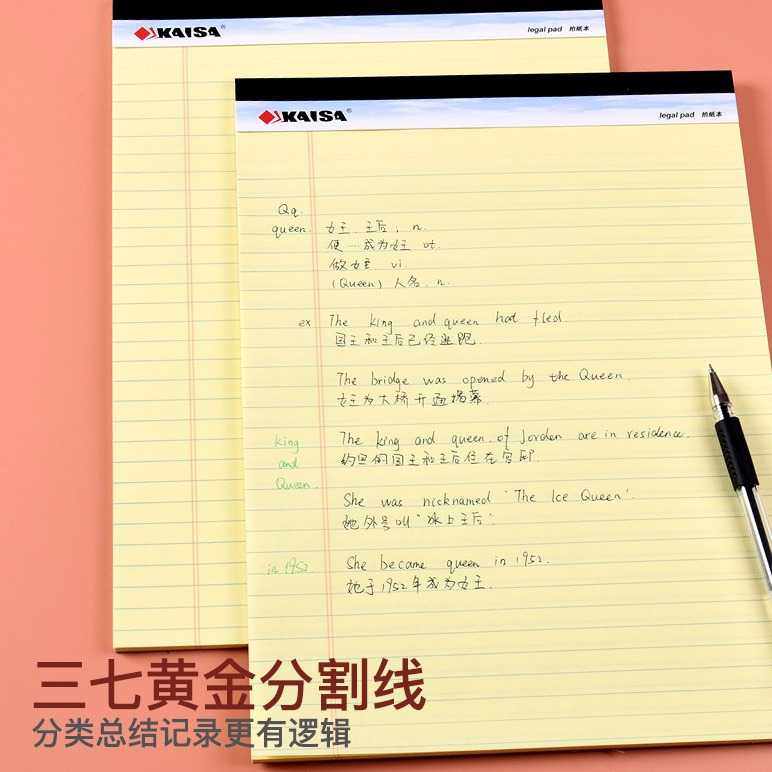 KAISA®
legal pad 拍纸本
KAISA®
legal pad 拍纸本
Qq.
queen. 女王、王后, n.
使…成为女王 vt.
做女王 vi.
(Queen) 人名. n.
ex The king and queen had fled
国王和王后已经逃跑.
The bridge was opened by the Queen.
女王为大桥开通揭幕.
king The king and queen of Jorden are in residence.
and 约旦的国王和王后住在宫邸.
Queen.
She was nicknamed 'The Ice Queen'.
她外号叫"冰上王后".
in 1952 She became queen in 1952.
她于1952年成为女王.
三七黄金分割线
分类总结记录更有逻辑